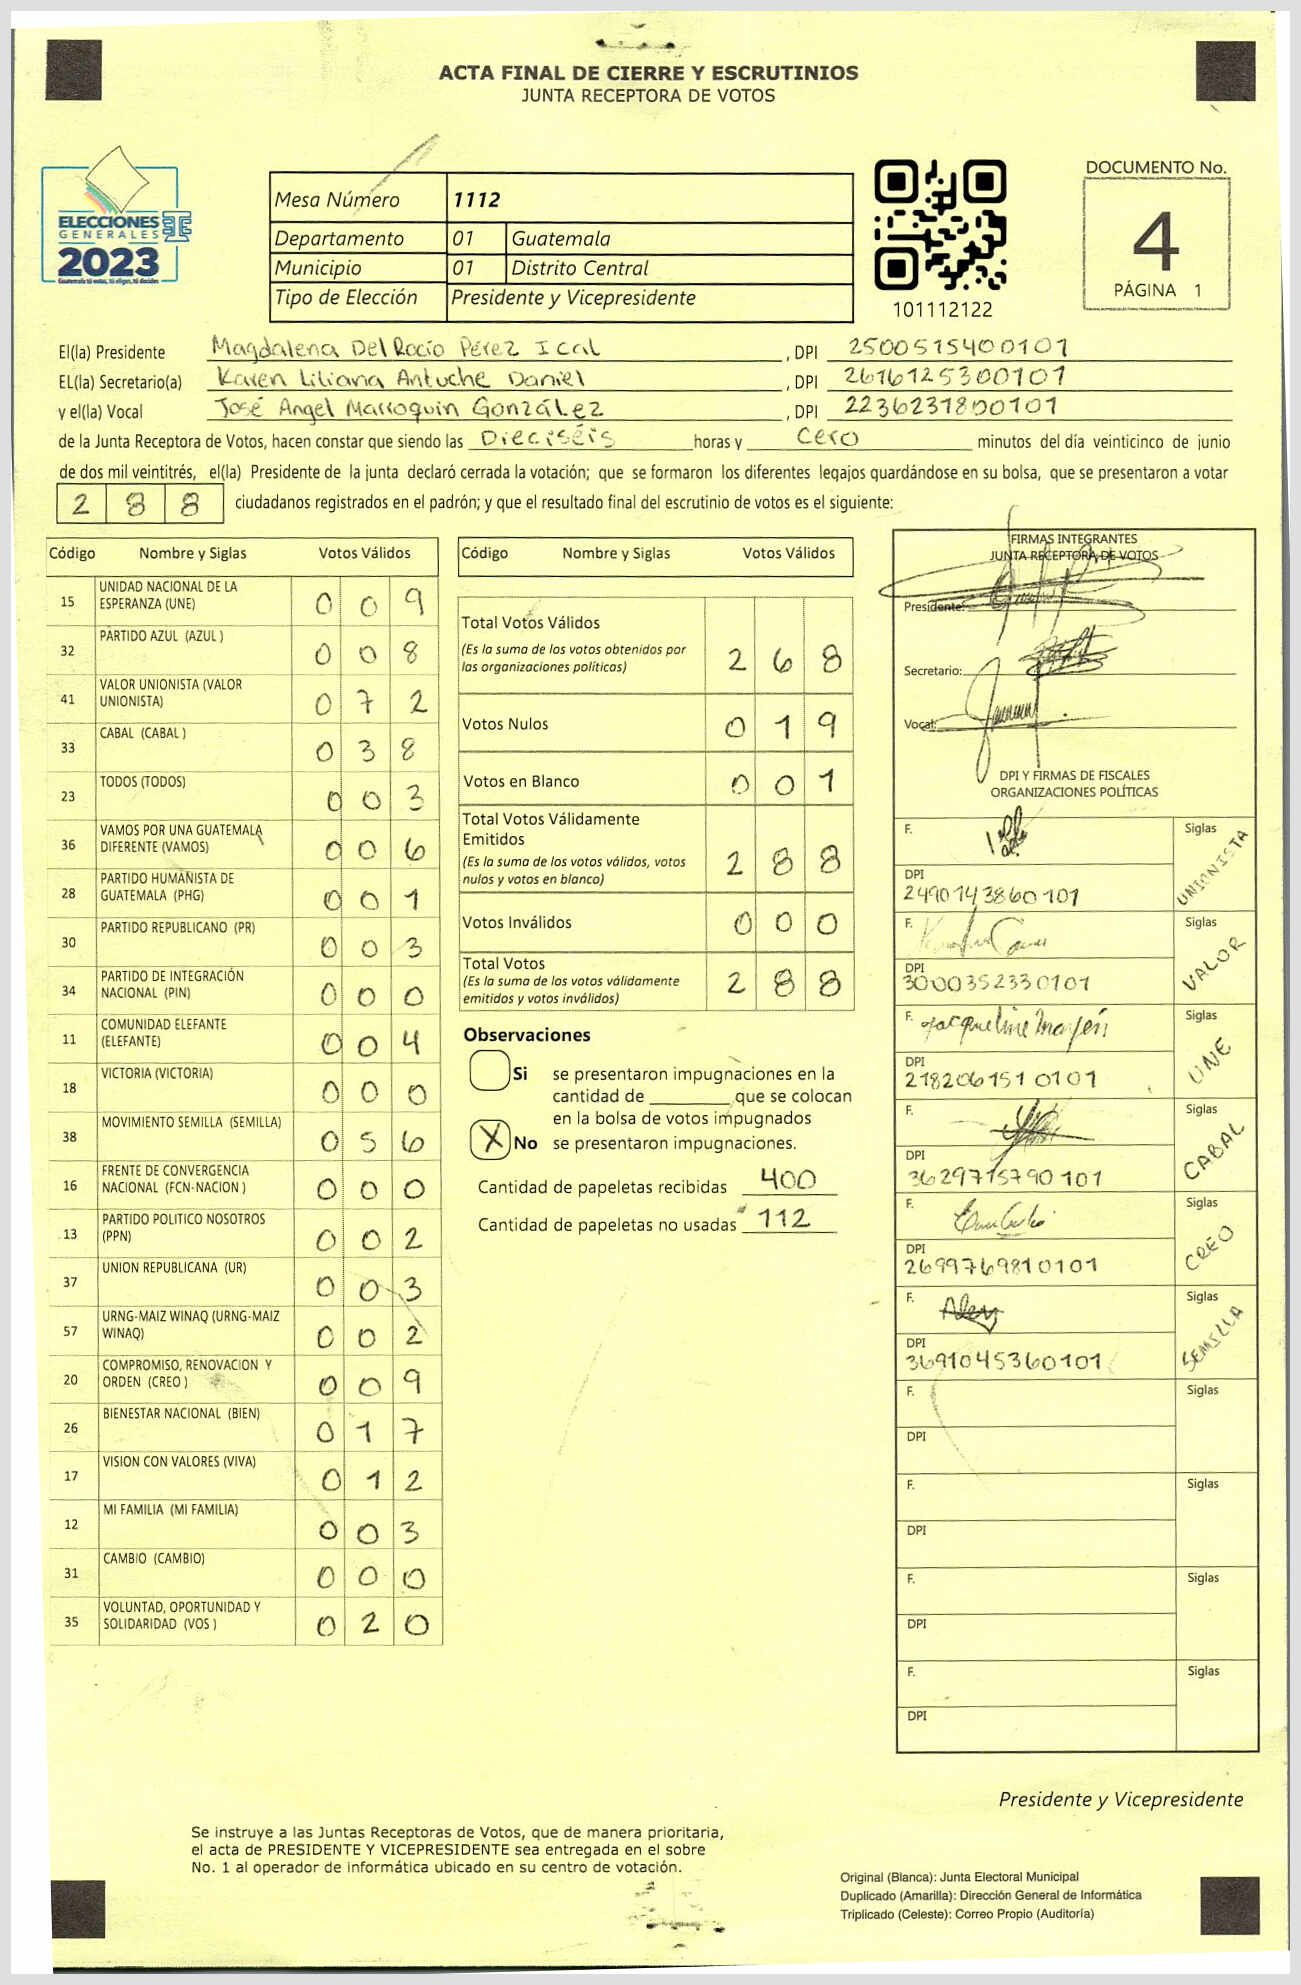 ACTA FINAL DE CIERRE Y ESCRUTINIOS
JUNTA RECEPTORA DE VOTOS
ELECCIONES
GENERALES
2023
Guatemala tú votas, tú eliges, tú decides
Mesa Número 1112
Departamento 01 Guatemala
Municipio 01 Distrito Central
Tipo de Elección Presidente y Vicepresidente
101112122
DOCUMENTO No.
4
PÁGINA 1
El(la) Presidente Magdalena Del Rocío Pérez Ical , DPI 2500515400101
EL(la) Secretario(a) Karen Liliana Antuche Daniel , DPI 2616125300101
y el(la) Vocal José Angel Marroquin González , DPI 2236231800101
de la Junta Receptora de Votos, hacen constar que siendo las Dieciséis horas y Cero minutos del día veinticinco de junio
de dos mil veintitrés, el(la) Presidente de la junta declaró cerrada la votación; que se formaron los diferentes legajos quardándose en su bolsa, que se presentaron a votar
2 8 8 ciudadanos registrados en el padrón; y que el resultado final del escrutinio de votos es el siguiente:
Código Nombre y Siglas Votos Válidos
15 UNIDAD NACIONAL DE LA
ESPERANZA (UNE) 0 0 9
32 PARTIDO AZUL (AZUL ) 0 0 8
41 VALOR UNIONISTA (VALOR
UNIONISTA) 0 7 2
33 CABAL (CABAL ) 0 3 8
23 TODOS (TODOS) 0 0 3
36 VAMOS POR UNA GUATEMALA
DIFERENTE (VAMOS) 0 0 6
28 PARTIDO HUMANISTA DE
GUATEMALA (PHG) 0 0 1
30 PARTIDO REPUBLICANO (PR) 0 0 3
34 PARTIDO DE INTEGRACIÓN
NACIONAL (PIN) 0 0 0
11 COMUNIDAD ELEFANTE
(ELEFANTE) 0 0 4
18 VICTORIA (VICTORIA) 0 0 0
38 MOVIMIENTO SEMILLA (SEMILLA) 0 5 6
16 FRENTE DE CONVERGENCIA
NACIONAL (FCN-NACION ) 0 0 0
13 PARTIDO POLITICO NOSOTROS
(PPN) 0 0 2
37 UNION REPUBLICANA (UR) 0 0 3
57 URNG-MAIZ WINAQ (URNG-MAIZ
WINAQ) 0 0 2
20 COMPROMISO, RENOVACION Y
ORDEN (CREO ) 0 0 9
26 BIENESTAR NACIONAL (BIEN) 0 1 7
17 VISION CON VALORES (VIVA) 0 1 2
12 MI FAMILIA (MI FAMILIA) 0 0 3
31 CAMBIO (CAMBIO) 0 0 0
35 VOLUNTAD, OPORTUNIDAD Y
SOLIDARIDAD (VOS ) 0 2 0
Código Nombre y Siglas Votos Válidos
Total Votos Válidos
(Es la suma de los votos obtenidos por
las organizaciones políticas) 2 6 8
Votos Nulos 0 1 9
Votos en Blanco 0 0 1
Total Votos Válidamente
Emitidos
(Es la suma de los votos válidos, votos
nulos y votos en blanco) 2 8 8
Votos Inválidos 0 0 0
Total Votos
(Es la suma de los votos válidamente
emitidos y votos inválidos) 2 8 8
Observaciones
Si se presentaron impugnaciones en la
cantidad de ________ que se colocan
en la bolsa de votos impugnados
X No se presentaron impugnaciones.
Cantidad de papeletas recibidas 400
Cantidad de papeletas no usadas 112
FIRMAS INTEGRANTES
JUNTA RECEPTORA DE VOTOS
Presidente:
Secretario:
Vocal:
DPI Y FIRMAS DE FISCALES
ORGANIZACIONES POLÍTICAS
F. Siglas UNIONISTA
DPI
2490143860101
F. Siglas VALOR
DPI
3000352330101
F. Jacqueline Mayén Siglas UNE
DPI
2182061510101
F. Siglas CABAL
DPI
3629715790101
F. Siglas CREO
DPI
2699769810101
F. Siglas SEMILLA
DPI
3691045360101
F. Siglas
DPI
F. Siglas
DPI
F. Siglas
DPI
F. Siglas
DPI
Presidente y Vicepresidente
Se instruye a las Juntas Receptoras de Votos, que de manera prioritaria,
el acta de PRESIDENTE Y VICEPRESIDENTE sea entregada en el sobre
No. 1 al operador de informática ubicado en su centro de votación.
Original (Blanca): Junta Electoral Municipal
Duplicado (Amarilla): Dirección General de Informática
Triplicado (Celeste): Correo Propio (Auditoría)